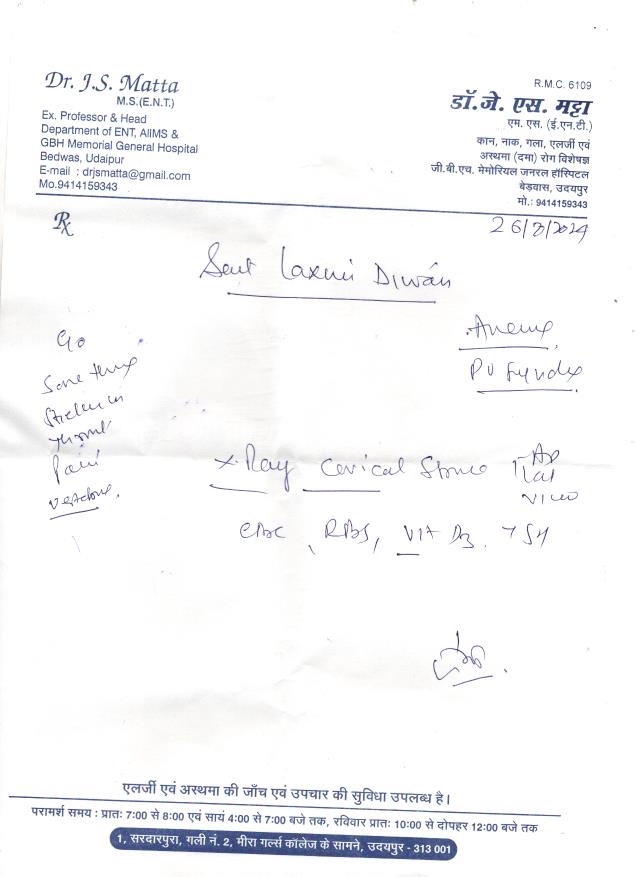 Dr. J.S. Matta
M.S.(E.N.T.)
Ex. Professor & Head
Department of ENT, AIIMS &
GBH Memorial General Hospital
Bedwas, Udaipur
E-mail : drjsmatta@gmail.com
Mo.9414159343
R.M.C. 6109
डॉ.जे. एस. मट्टा
एम. एस. (ई.एन.टी.)
कान, नाक, गला, एलर्जी एवं
अस्थमा (दमा) रोग विशेषज्ञ
जी.बी.एच. मेमोरियल जनरल हॉस्पिटल
बेड़वास, उदयपुर
मो.: 9414159343
Rx
Laxmi Diwan
throat
Pain
X-Ray Cervical
AP
CBC, RBS, Vit D3. TSH
एलर्जी एवं अस्थमा की जाँच एवं उपचार की सुविधा उपलब्ध है।
परामर्श समय : प्रातः 7:00 से 8:00 एवं सायं 4:00 से 7:00 बजे तक, रविवार प्रातः 10:00 से दोपहर 12:00 बजे तक
1, सरदारपुरा, गली नं. 2, मीरा गर्ल्स कॉलेज के सामने, उदयपुर - 313 001